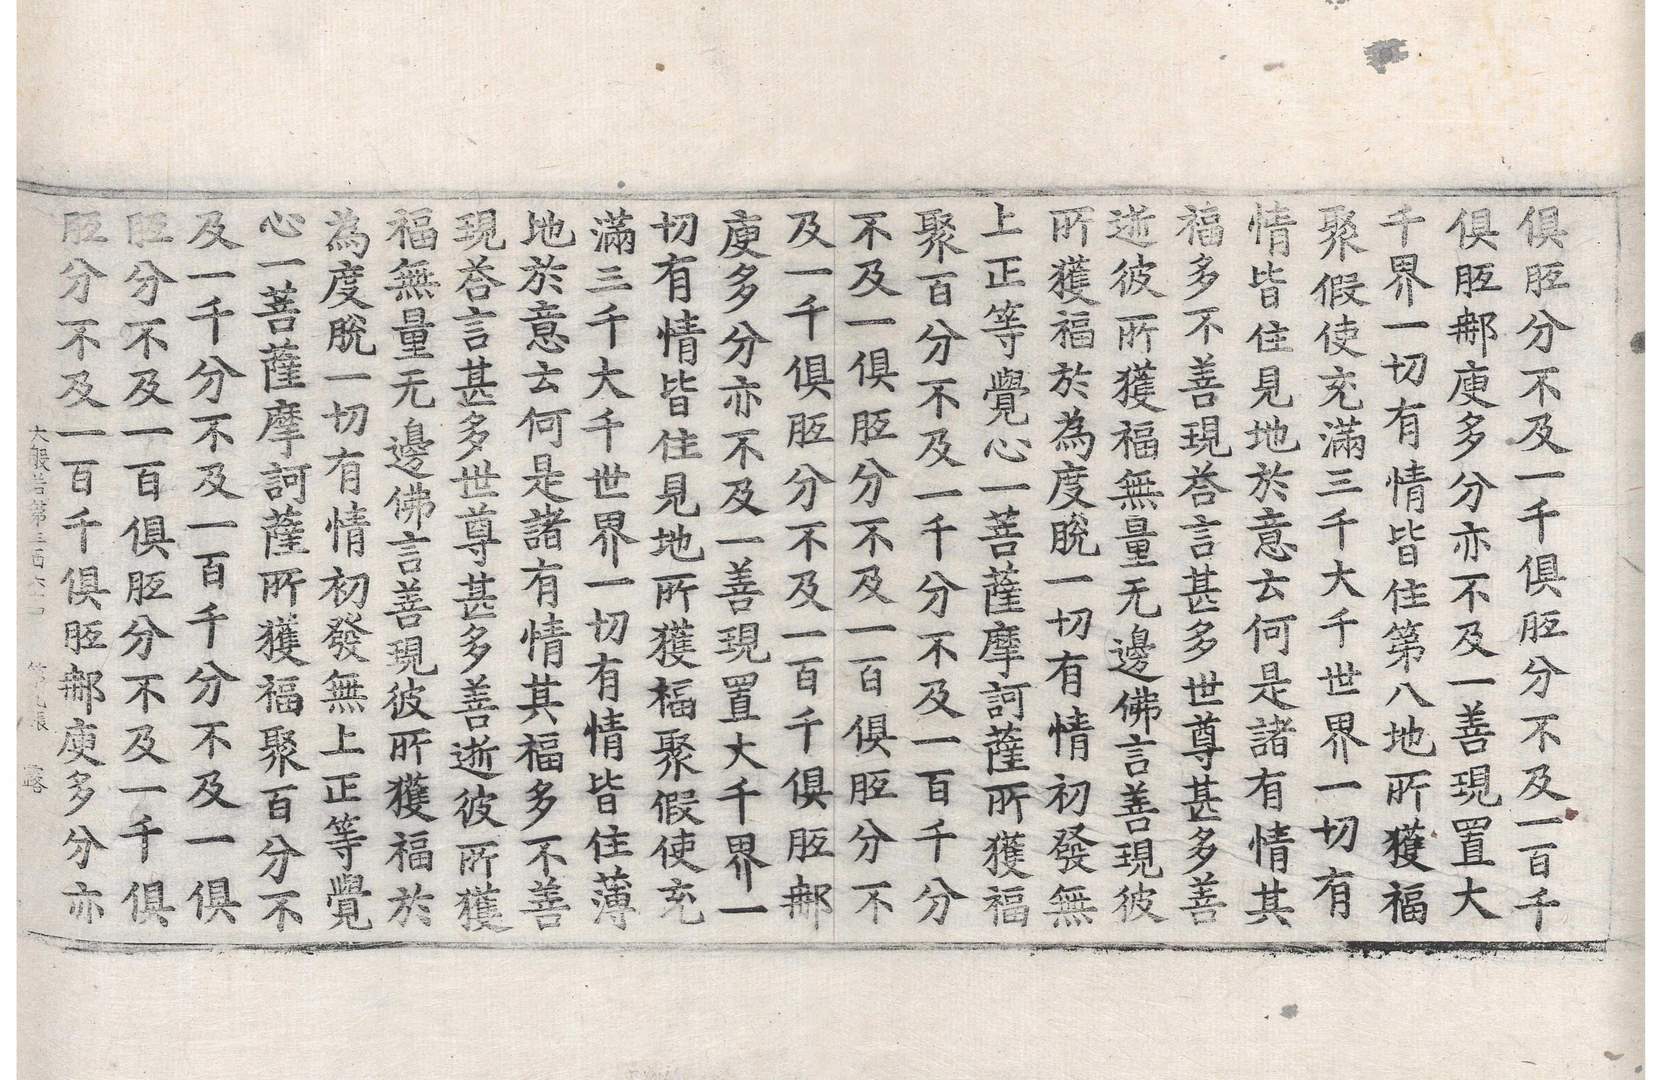 俱胝分不及一千俱胝分不及一百千
俱胝郍庾多分亦不及一善現置大
千界一切有情皆住第八地所獲福
聚假使充滿三千大千世界一切有
情皆住見地於意云何是諸有情其
福多不善現荅言甚多世尊甚多善
逝彼所獲福無量无邊佛言善現彼
所獲福於為度脫一切有情初發無
上正等覺心一菩薩摩訶薩所獲福
聚百分不及一千分不及一百千分
不及一俱胝分不及一百俱胝分不
及一千俱胝分不及一百千俱胝郍
庾多分亦不及一善現置大千界一
切有情皆住見地所獲福聚假使充
滿三千大千世界一切有情皆住薄
地於意云何是諸有情其福多不善
現荅言甚多世尊甚多善逝彼所獲
福無量无邊佛言善現彼所獲福於
為度脫一切有情初發無上正等覺
心一菩薩摩訶薩所獲福聚百分不
及一千分不及一百千分不及一俱
胝分不及一百俱胝分不及一千俱
胝分不及一百千俱胝郍庾多分亦
大般若第三百六